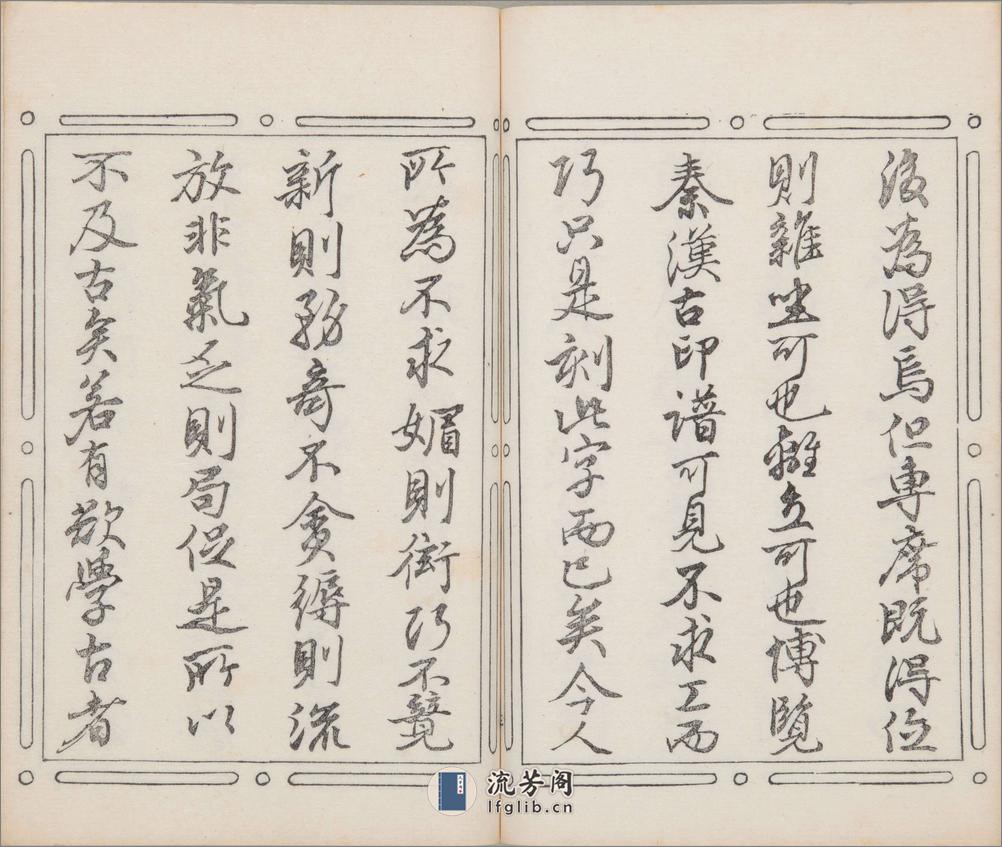 後為得焉但專席既得位
則雜坐可也離立可也博覽
秦漢古印譜可見不求工而
巧只是刻此字而已矣今人
所為不求媚則衒巧不競
新則務奇不貪縟則流
放非氣乏則局促是所以
不及古矣若有欲學古者
流芳阁
lfglib.cn